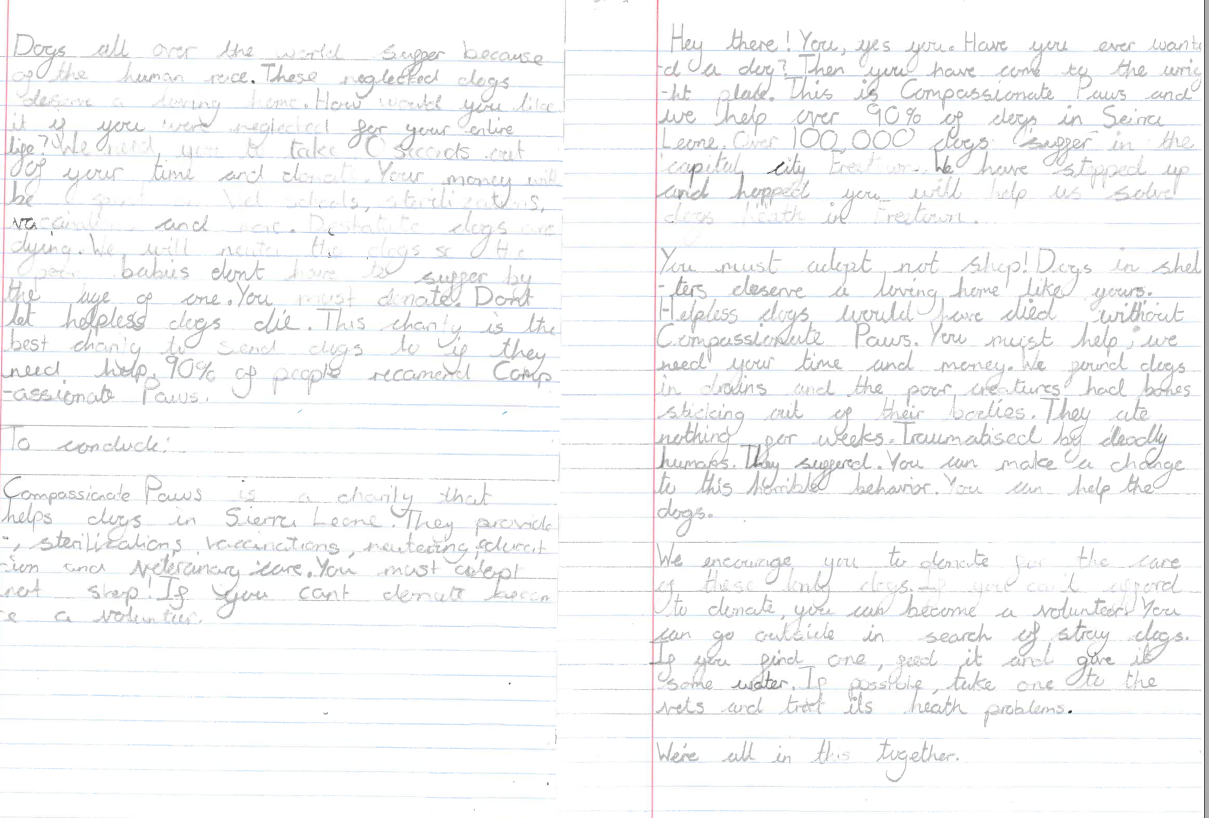 Dogs all over the world suffer because
of the human race. These neglected dogs
deserve a loving home. How would you like
it if you were neglected for your entire
life? We need you to take 10 seconds out
of your time and donate. Your money will
be spent Vet schools, sterilizations,
and care. Destatute dogs are
dying. We will neuter the dogs so the
babies dont have to suffer by
the age of one. You must donate. Dont
let helpless dogs die. This charity is the
best charity to send dogs to if they
need help. 90% of people recamend Comp
-assionate Paws.
To conclude:
Compassionate Paws is a charity that
helps dogs in Sierra Leone. They provide
-, sterilizations, vaccinations, neutering, educat
cion and veteranary care. You must adopt
not shop! If you cant donate becom
e a volunteer.
Hey there! You, yes you. Have you ever wante
-d a dog? Then you have come to the wrig
-ht place. This is Compassionate Paws and
we help over 90% of dogs in Seirra
Leone. Over 100,000 dogs suffer in the
capital city Freetown. We have stipped up
and hopped you will help us solve
dogs heath in Freetown.
You must adopt not shop! Dogs in shel
-ters deserve a loving home like yours.
Helpless dogs would have died without
Compassionate Paws. You must help; we
need your time and money. We found dogs
in drains and the poor creatures had bones
sticking out of their bodies. They ate
nothing for weeks. Traumatised by deadly
humans. They suffered. You can make a change
to this horrible behavior. You can help the
dogs.
We encourage you to donate for the care
of these dogs. If you can't afford
to donate, you can become a volunteer. You
can go outside in search of stray dogs.
If you find one, feed it and give it
some water. If possible, take one to the
vets and trat its heath problems.
We're all in this together.